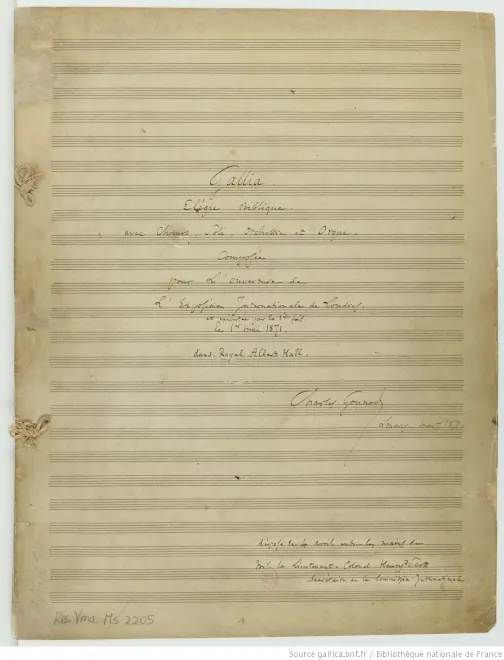 Gallia.
Elégie Biblique.
avec Chœurs, Soli, Orchestre et Orgue.
Composée
pour L'ouverture de
L'Exposition Internationale de Londres.
et exécutée pour la 1ère fois
le 1er mai 1871.
dans Royal Albert Hall.
Charles Gounod
mars 1871.
déposé le 4 avril entre les mains du
Lieutenant-Colonel Henry Scott
Secrétaire de la Commission Internationale
Rés Vma Ms 2205
Source gallica.bnf.fr / Bibliothèque nationale de France